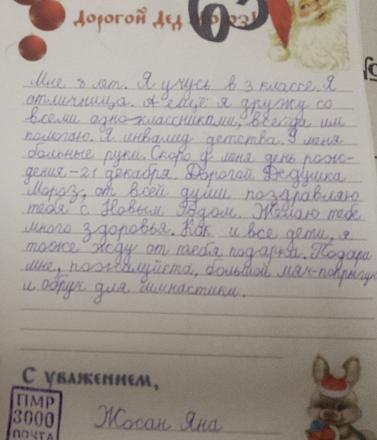 Дорогой Дед Мороз!
63
Мне 8 лет. Я учусь в 3 классе. Я
отличница. А еще я дружу со
всеми одно-классниками, всегда им
помогаю. Я инвалид детства. У меня
больные руки. Скоро у меня день рож-
дения - 21 декабря. Дорогой Дедушка
Мороз, от всей души поздравляю
тебя с Новым Годом. Желаю тебе
много здоровья. Как и все дети, я
тоже жду от тебя подарка. Подари
мне, пожалуйста, большой мяч-попрыгун
и обруч для гимнастики.
С уважением,
ПМР
3000
ПОЧТА
Жосан Яна